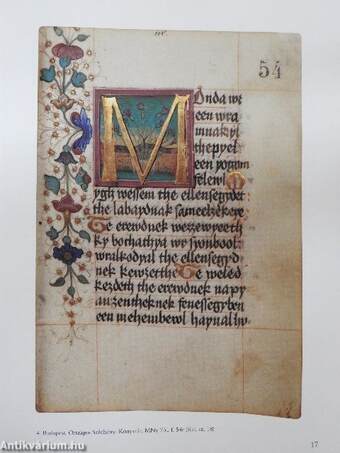 54
Monda wr
een wra
mnakyl
thepyel
een yogom
felewl M
ygh wessem the ellensegydet
the labaydnak sameelzekere
Te erewdnek wezzeyeeth
ky bothathya wr syonbool
wralkodyal the ellensegyd
nek kewzetthe Te weled
kezdeth the erewdnek napy
an zentheknek fenessegyben
een mehembewl haynal
4. Budapest, Országos Széchényi Könyvtár,
17
Antikvarium.hu
antikvarium.hu